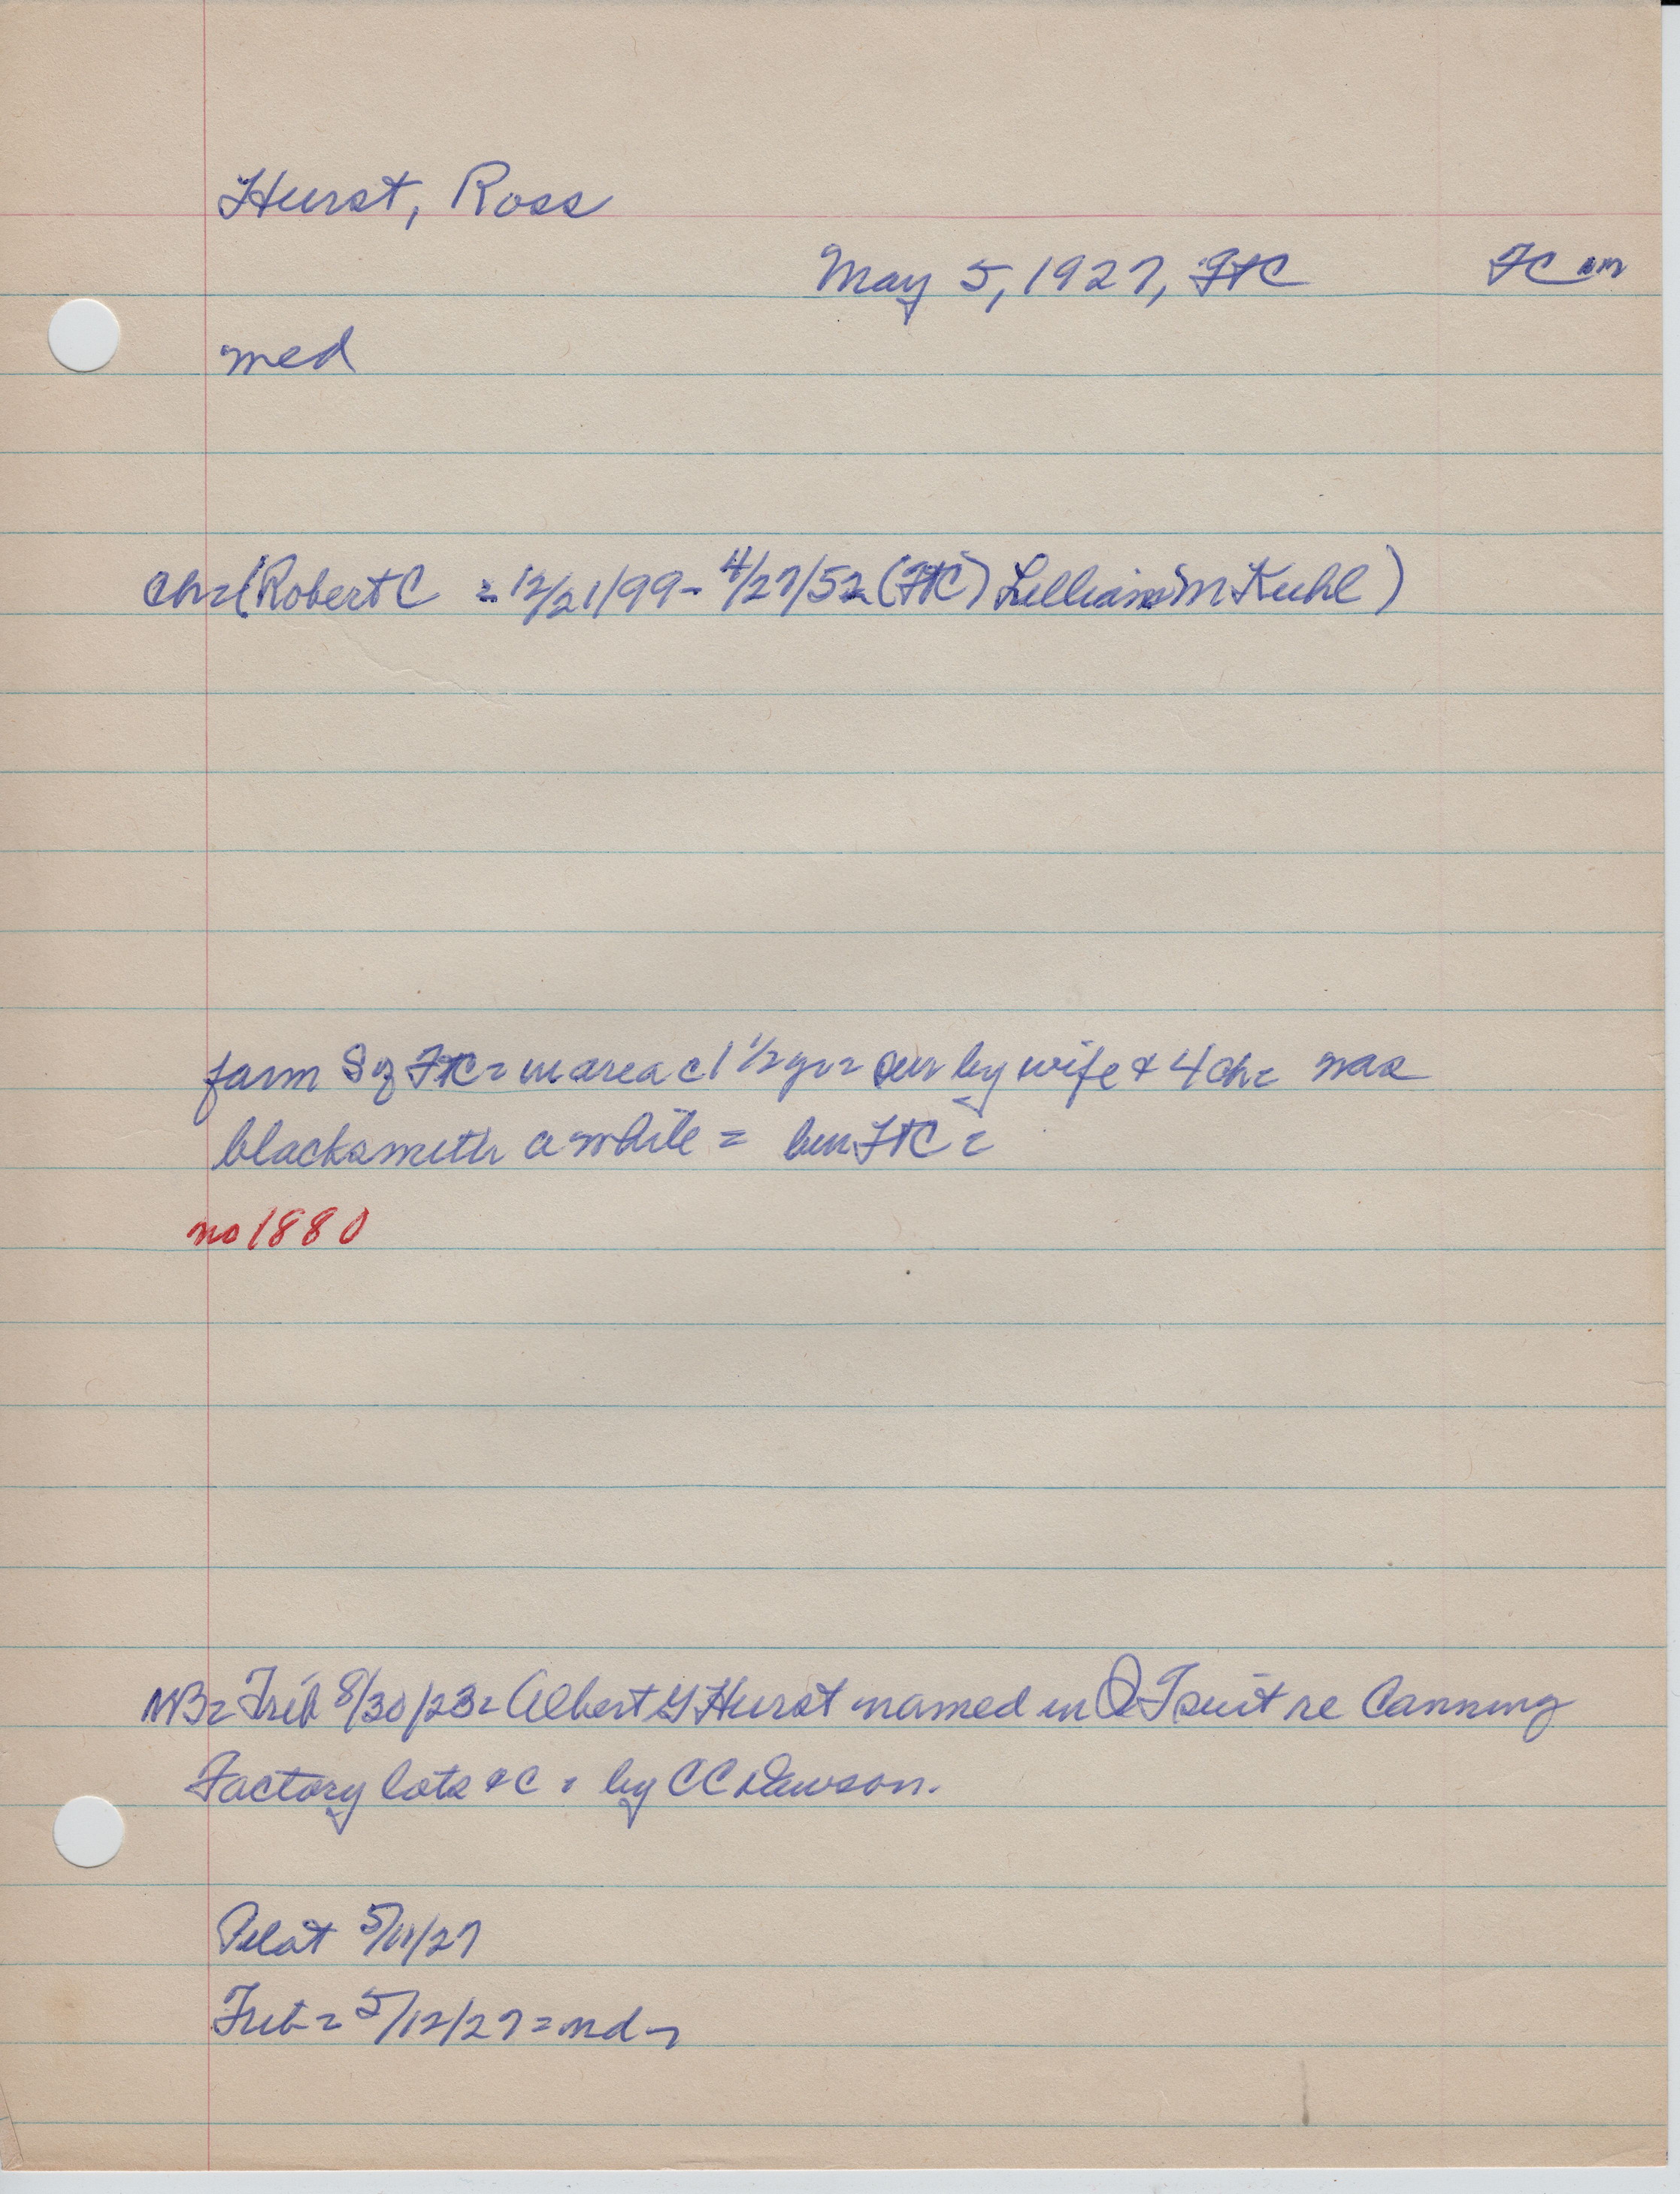 Hurst, Ross
May 5, 1927, FtC FC em
med
Ch = (Robert C = 12/21/99 - 4/27/52 (FtC) Lillian M Kuhl)
farm S of FtC = in area c 1 1/2 yr = sur by wife & 4 ch = was
blacksmith a while = bur FtC =
no 1880
NB = Trib 8/30/23 = Albert G Hurst named in QT suit re Canning
Factory lots &C = by CC Dawson.
Pilot 5/11/27
Trib = 5/12/27 = nd -